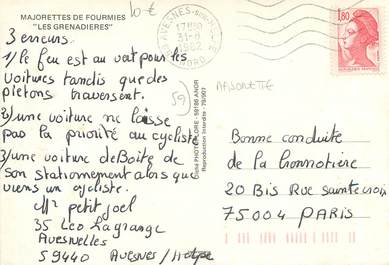 MAJORETTES DE FOURMIES
"LES GRENADIERES"
10 €
3 erreurs.
1/le feu est au vert pour les
voitures tandis que des
pietons traversent.
2/une voiture ne laisse
pas la priorité au cycliste
3/une voiture deBoite de
son stationnement alors que
viens un cycliste.
Mr petit joel
35 Leo Lagrange
Avesnelles
59440 Avesnes /
59
Cliché PHOTOFLORE - 59186 ANOR
Reproduction Interdite - 79/907
AVESNES-SUR-HELPE
17H30
31-8
1982
NORD
1,80
MAJORETTE
Bonne conduite
de la Prionnotière
20 Bis Rue Sainte croix
75004 PARIS